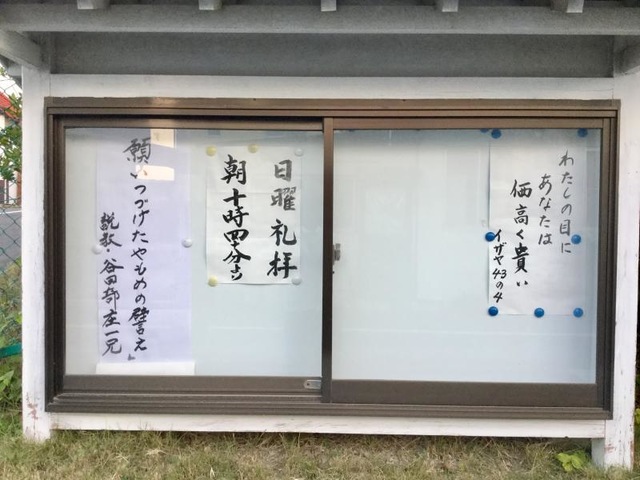 わたしの目に
あなたは
価高く貴い
イザヤ43の4
日曜礼拝
朝十時四十分より
願いつづけたやもめの譬え」
説教・谷田部庄一兄